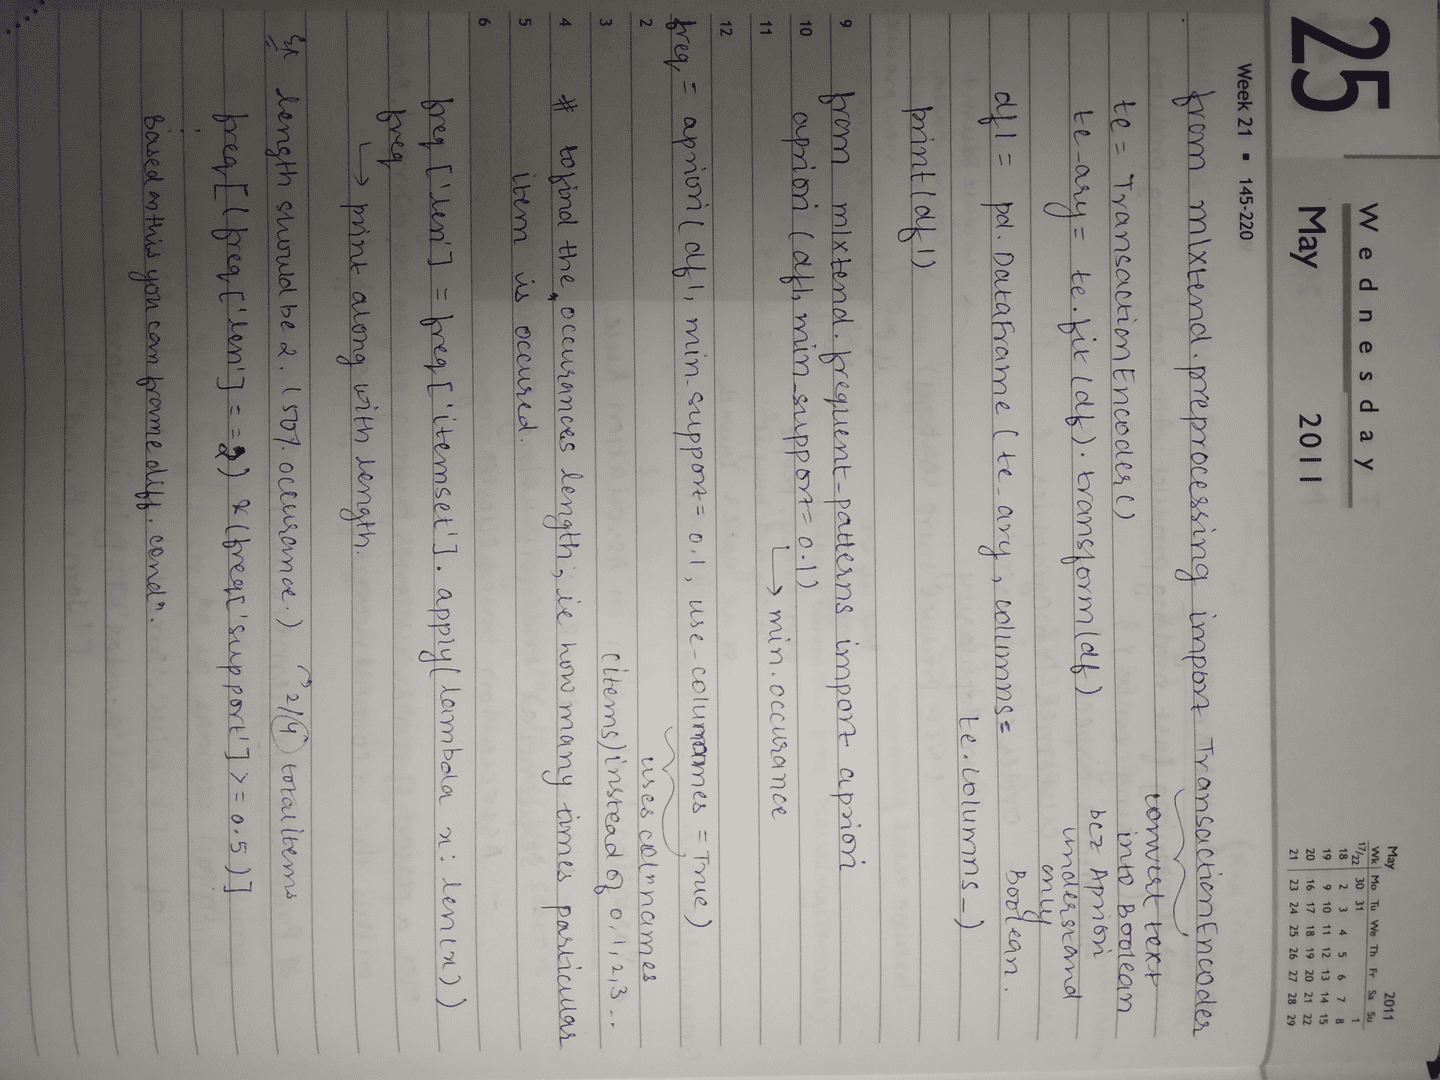 25
Wednesday
May 2011
May 2011
Wk Mo Tu We Th Fr Sa Su
17/22 30 31 1
18 2 3 4 5 6 7 8
19 9 10 11 12 13 14 15
20 16 17 18 19 20 21 22
21 23 24 25 26 27 28 29
Week 21 ▪ 145-220
from mlxtend.preprocessing import TransactionEncoder
convert text
te = TransactionEncoder()
into Boolean
bcz Apriori
te_ary = te.fit(df).transform(df)
understand
only
Boolean.
df1 = pd.DataFrame(te_ary, columns=
te.columns_)
print(df1)
9 from mlxtend.frequent_patterns import apriori
10 apriori(df1, min_support=0.1)
11 ↳ min. occurance
12
freq = apriori(df1, min_support=0.1, use_colummnames = True)
2 uses colⁿ names
3 (items) instead of 0,1,2,3..
4 # to find the occurances length, ie how many times particular
5 item is occured.
6
freq['len'] = freq['itemset'].apply(lambda x: len(x))
freq
↳ print along with length.
Ex length should be 2. (50% occurance.) 2/9 total items
freq[(freq['len'] == 2) & (freq['support'] >= 0.5)]
Based on this you can frame diff. condⁿ.